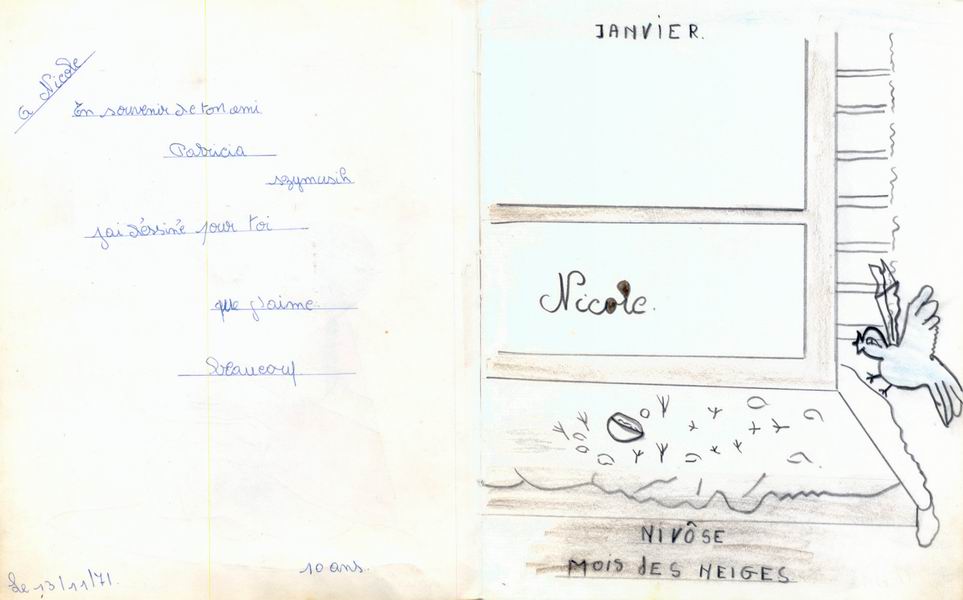 à Nicole
En souvenir de ton ami
Patricia
szymusik
j'ai déssiné pour toi
que j'aime
beaucoup
10 ans.
Le 13/11/71.
JANVIER.
Nicole.
NIVÔSE
MOIS dES NEIGES